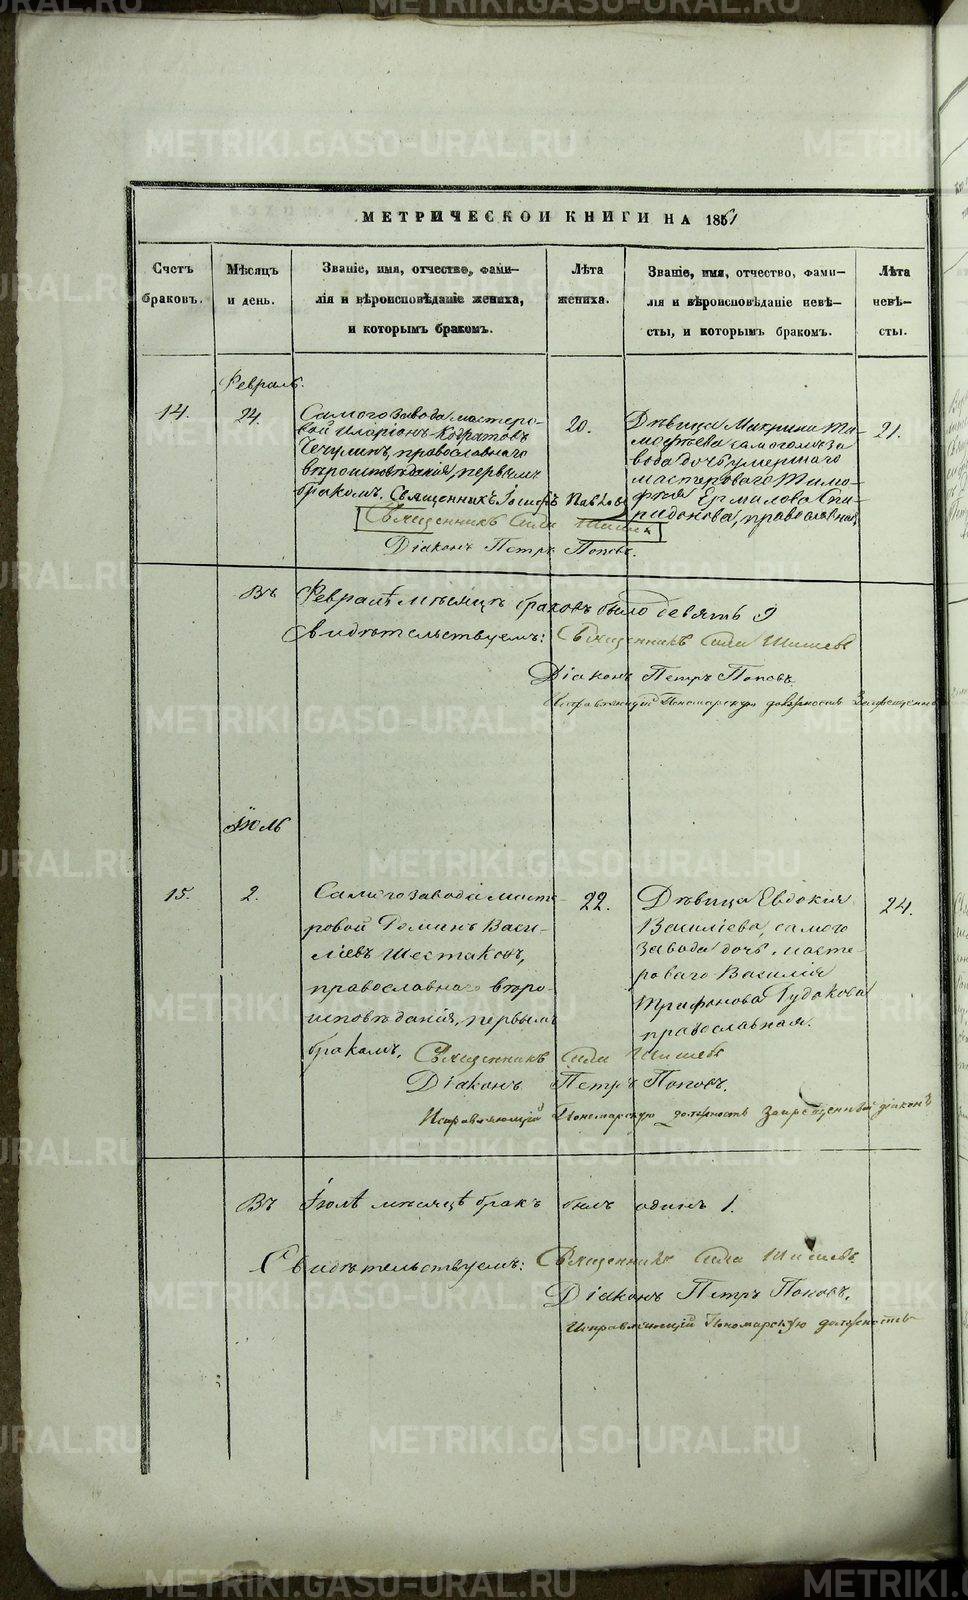 МЕТРИЧЕСКОЙ КНИГИ НА 1861
Счетъ браковъ.
Мѣсяцъ и день.
Званіе, имя, отчество, фами-
лія и вѣроисповѣданіе жениха,
и которымъ бракомъ.
Лѣта жениха.
Званіе, имя, отчество, фами-
лія и вѣроисповѣданіе невѣ-
сты, и которымъ бракомъ.
Лѣта невѣ-
сты.
Февраль.
14.
24.
Самого завода мастеро-
вой Иларіонъ Кодратовъ
Чечулинъ, православнаго
вѣроисповѣданія, первымъ
бракомъ. Священникъ Іосифъ Павловъ
Священникъ Сила Шишевъ
Діаконъ Петръ Поповъ.
20.
Дѣвица Макрина Ти-
моѳѣева самого за
вода дочь умершаго
мастероваго Тимо-
фѣя Ермилова Спи-
ридонова, православная,
21.
Въ Февралѣ мѣсяцѣ браковъ было девять 9
Свидѣтельствуемъ: Священникъ Сила Шишевъ
Діаконъ Петръ Поповъ.
Исправляющій Пономарскую должность Запрещенный
Іюль
15.
2.
Самого завода масте-
ровой Романъ Васи-
ліевъ Шестаковъ,
православнаго вѣро-
исповѣданія, первымъ
бракомъ. Священникъ Сила Шишевъ
Діаконъ Петръ Поповъ.
Исправляющій Пономарскую должность Запрещенный діаконъ
22.
Дѣвица Евдокія
Василіева, самого
завода дочь, масте-
роваго Василія
Трифонова Гудакова
православная.
24.
Въ Іюлѣ мѣсяцѣ бракъ былъ одинъ 1.
Свидѣтельствуемъ: Священникъ Сила Шишевъ
Діаконъ Петръ Поповъ.
Исправляющій Пономарскую должность
METRIKI.GASO-URAL.RU